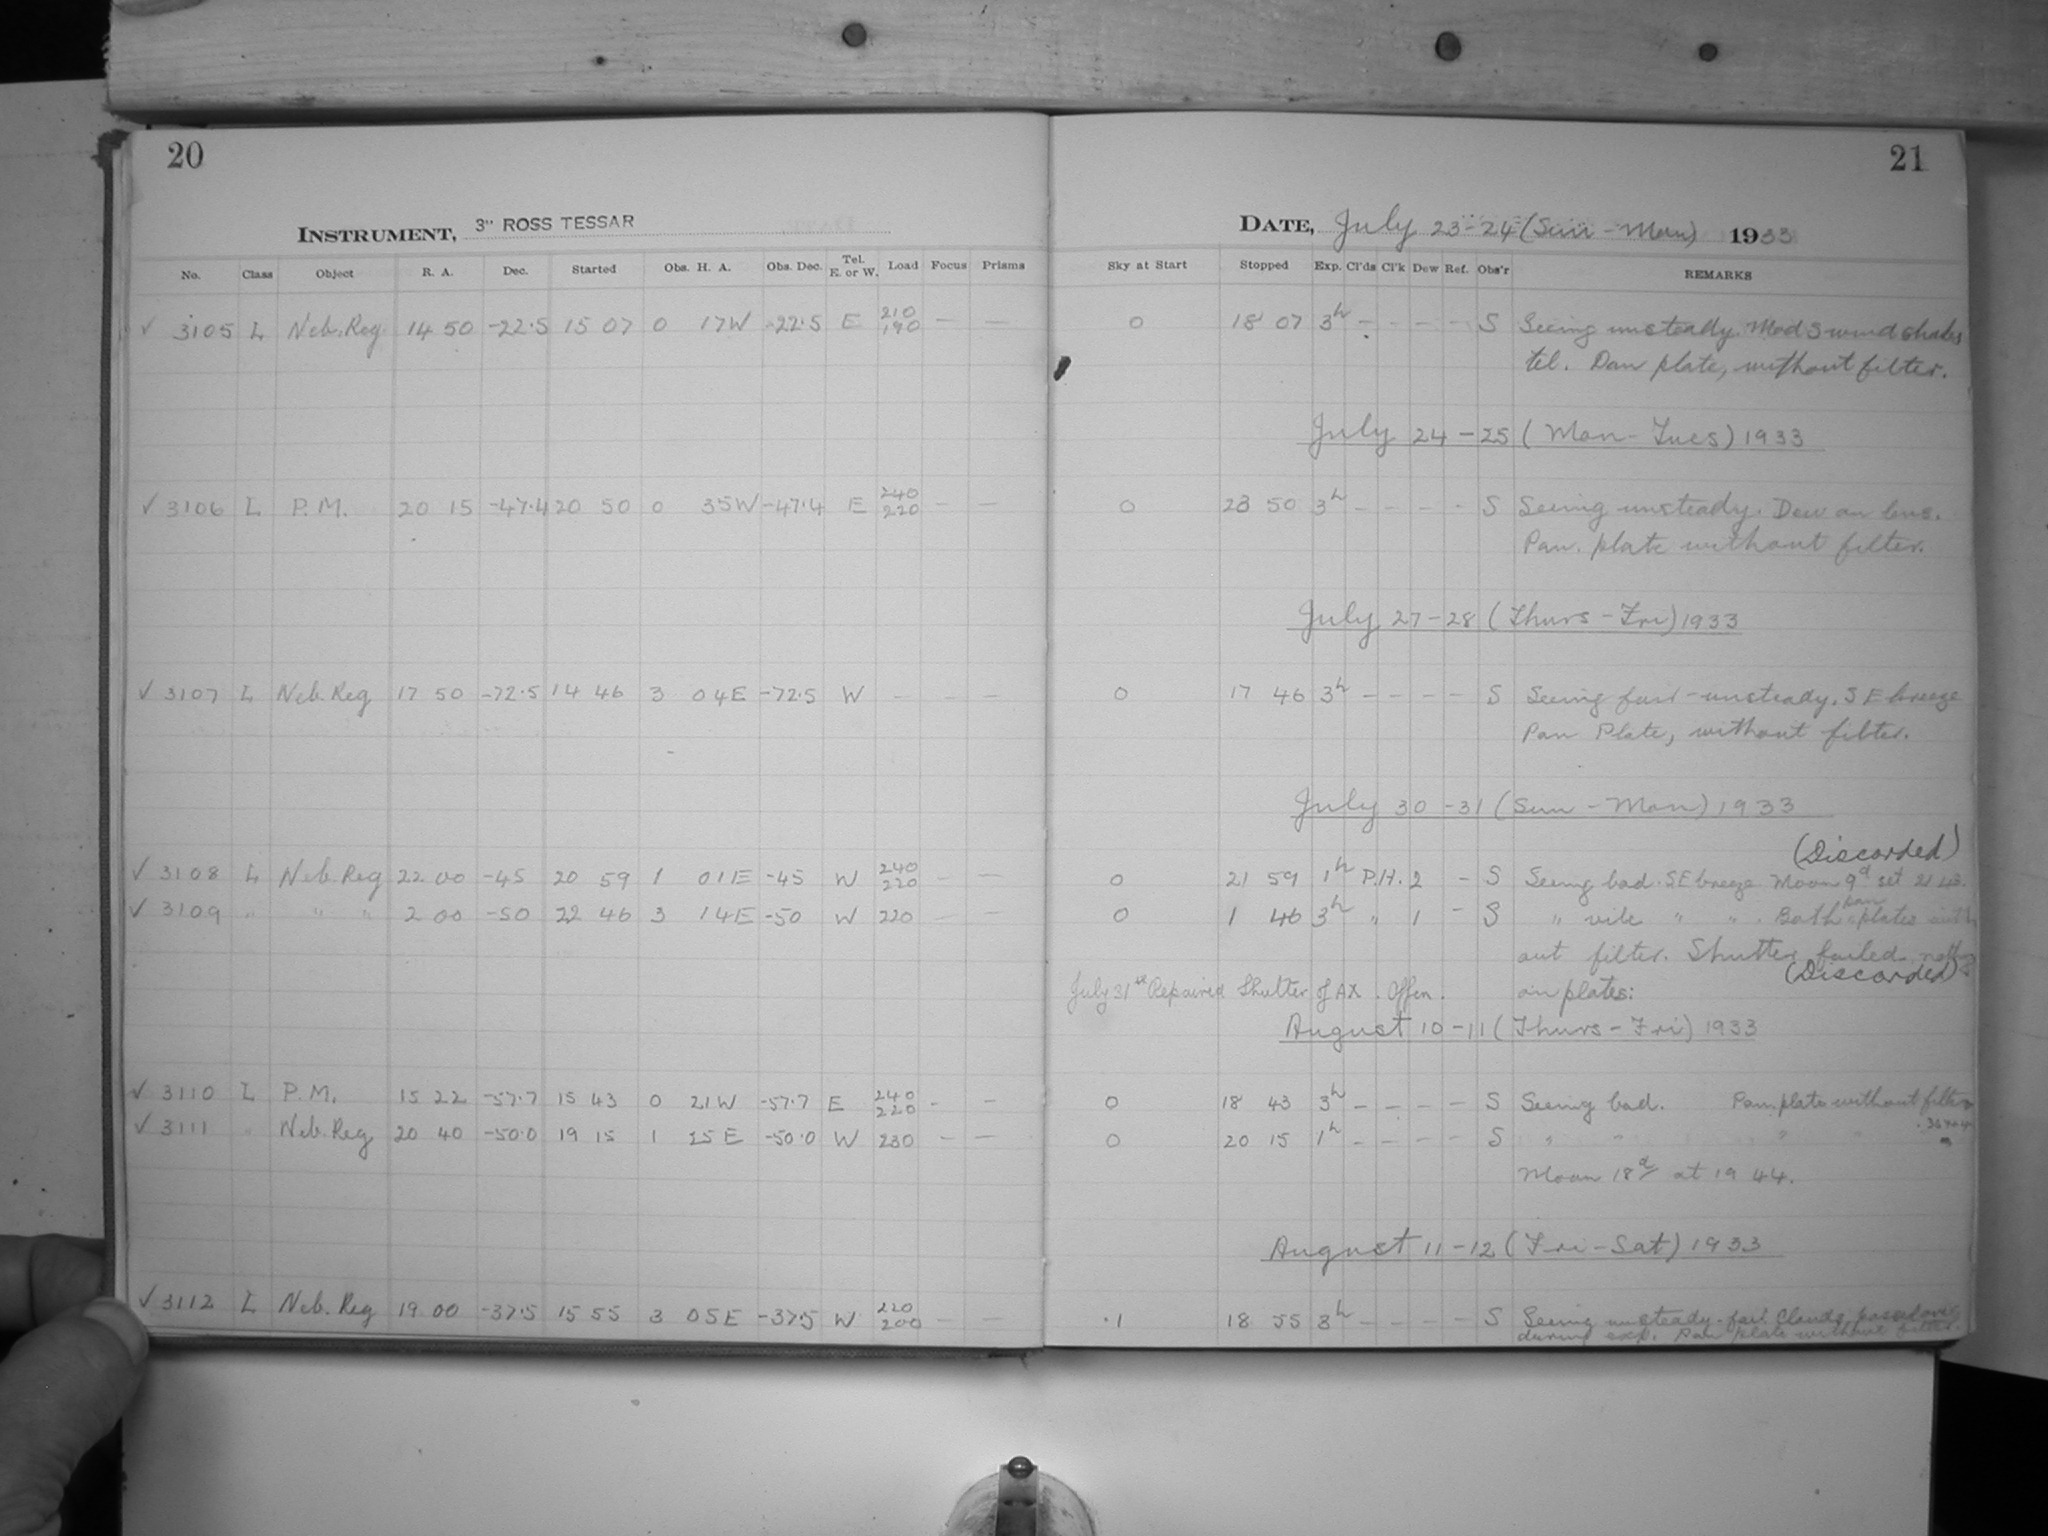 20
21
INSTRUMENT, 3" ROSS TESSAR
DATE, July 23-24 (Sun - Mon) 1933
No. Class Object R. A. Dec. Started Obs. H. A. Obs. Dec. Tel. E. or W. Load Focus Prisms Sky at Start Stopped Exp. Cl'ds Cl'k Dew Ref. Obs'r REMARKS
✓ 3105 L Neb. Reg. 14 50 -22.5 15 07 0 17W -22.5 E 210 190 — — 0 18 07 3h - - - - S Seeing unsteady. Mod S wind shakes
tel. Pan plate, without filter.
July 24-25 (Mon - Tues) 1933
✓ 3106 L P.M. 20 15 -47.4 20 50 0 35W -47.4 E 240 220 — — 0 23 50 3h - - - - S Seeing unsteady. Dew on lens.
Pan. plate without filter.
July 27-28 (Thurs - Fri) 1933
✓ 3107 L Neb. Reg 17 50 -72.5 14 46 3 04E -72.5 W - - - 0 17 46 3h - - - - S Seeing fair - unsteady. SE breeze
Pan Plate, without filter.
July 30-31 (Sun - Mon) 1933
(Discarded)
✓ 3108 L Neb. Reg 22 00 -45 20 59 1 01E -45 W 240 220 - — 0 21 59 1h P.H. 2 - S Seeing bad. SE breeze Moon 9d set 21 43.
✓ 3109 " " " 2 00 -50 22 46 3 14E -50 W 220 — — 0 1 46 3h " 1 - S " vile " " . Both pan plates with
out filter. Shutter failed nothing
(Discarded)
July 31st Repaired Shutter of AX. on plates:
August 10-11 (Thurs - Fri) 1933
✓ 3110 L P.M. 15 22 -57.7 15 43 0 21W -57.7 E 240 220 - — 0 18 43 3h - - - - S Seeing bad. Pan. plate without filter
✓ 3111 " Neb. Reg 20 40 -50.0 19 15 1 25E -50.0 W 230 — — 0 20 15 1h - - - - S " " " "
Moon 18d at 19 44.
August 11-12 (Fri - Sat) 1933
✓ 3112 L Neb. Reg 19 00 -37.5 15 55 3 05E -37.5 W 220 200 — — .1 18 55 3h - - - - S Seeing unsteady - fair. Clouds passed over
during exp. Pan plate without filter.